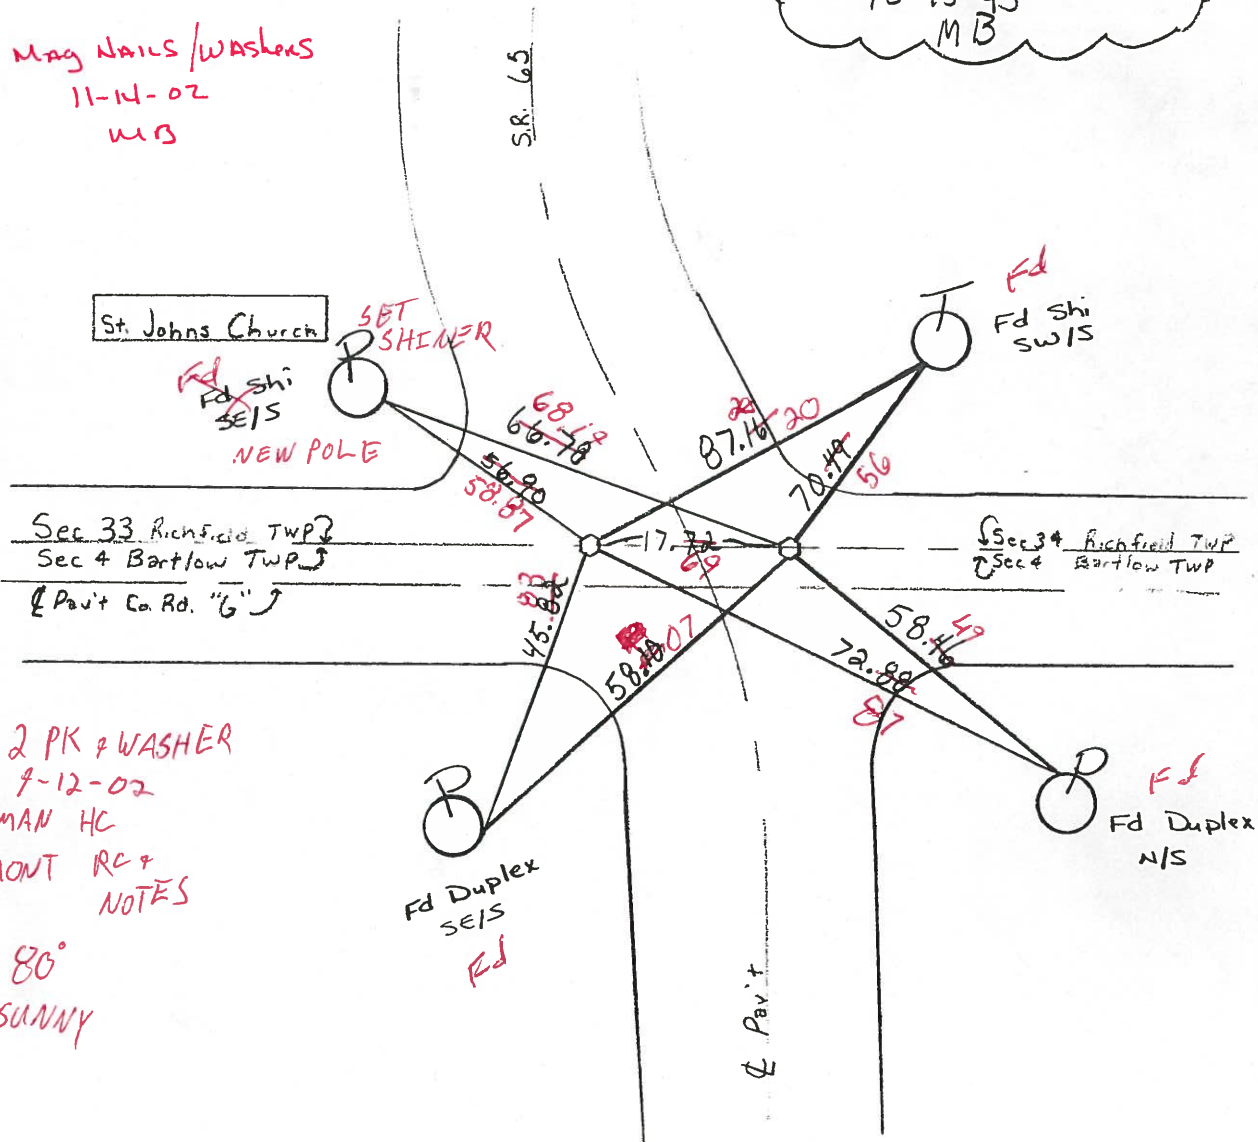 MB
Mag NAILS/WASHERS
11-14-02
MB
S.R. 65
St. Johns Church
P
SET
SHINER
Fd
Fd Shi
SE/S
NEW POLE
T
Fd
Fd Shi
SW/S
68.19
66.78
56.90
58.87
20
87.16
70.49
56
17.72
69
Sec 33 Richfield TWP
Sec 4 Bartlow TWP
℄ Pav't Co. Rd. "G"
Sec 34 Richfield TWP
Sec 4 Bartlow TWP
83
45.82
07
58.10
58.46
49
72.88
87
2 PK & WASHER
9-12-02
MAN HC
MONT RC &
NOTES
80°
SUNNY
P
Fd Duplex
SE/S
Fd
P
Fd
Fd Duplex
N/S
℄ Pav't